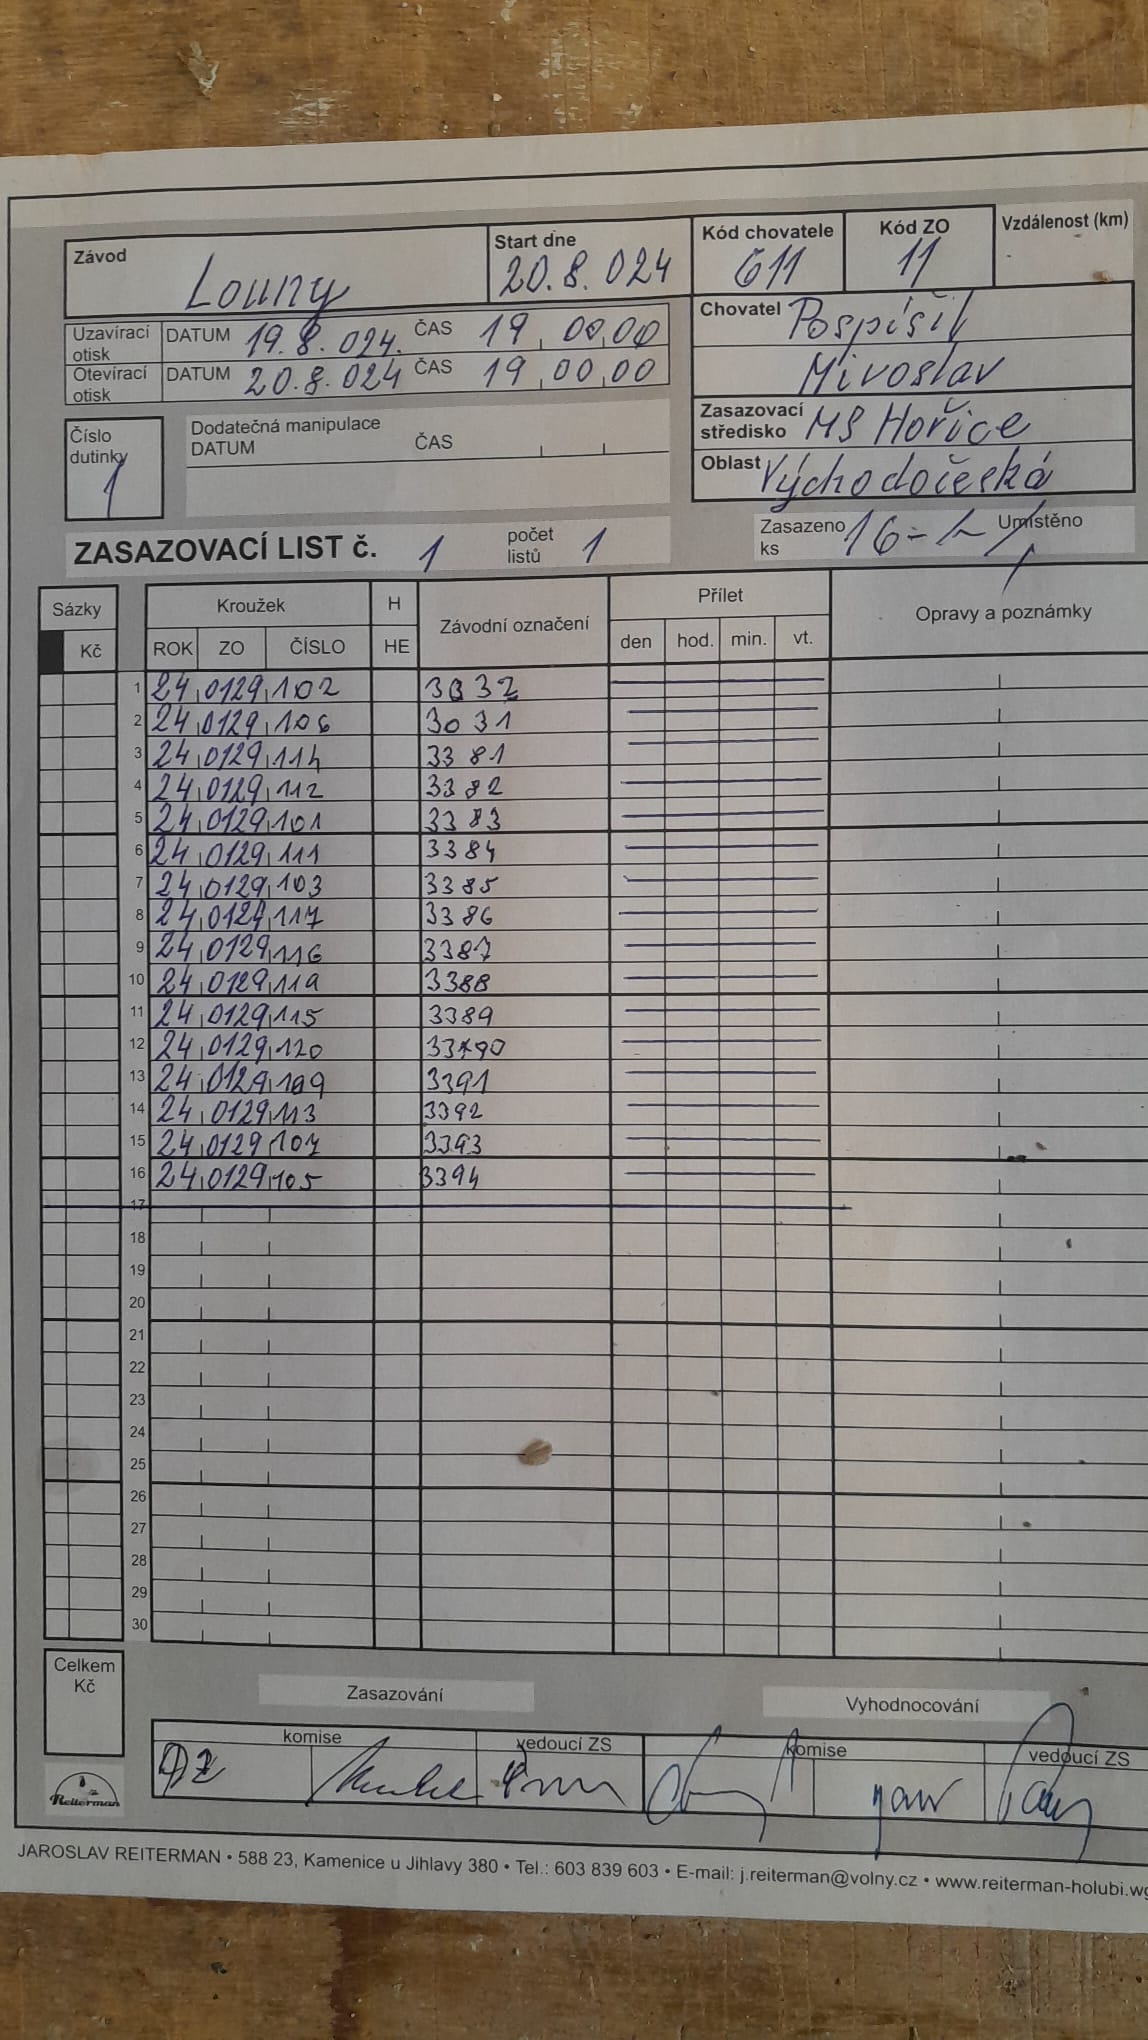 Závod Louny
Start dne 20.8.024
Kód chovatele 611
Kód ZO 11
Vzdálenost (km)
Uzavírací otisk DATUM 19.8.024. ČAS 19,00,00
Otevírací otisk DATUM 20.8.024 ČAS 19,00,00
Chovatel Pospíšil
Miroslav
Zasazovací středisko MS Hořice
Oblast Východočeská
Číslo dutinky 1
Dodatečná manipulace
DATUM ČAS
ZASAZOVACÍ LIST č. 1 počet listů 1
Zasazeno ks 16 Umístěno
Sázky Kroužek H Závodní označení Přílet Opravy a poznámky
Kč ROK ZO ČÍSLO HE den hod. min. vt.
1 24 0129 102 3032
2 24 0129 106 3031
3 24 0129 114 3381
4 24 0129 112 3382
5 24 0129 101 3383
6 24 0129 111 3384
7 24 0129 103 3385
8 24 0129 117 3386
9 24 0129 116 3387
10 24 0129 119 3388
11 24 0129 115 3389
12 24 0129 120 3390
13 24 0129 109 3391
14 24 0129 113 3392
15 24 0129 107 3393
16 24 0129 105 3394
17
18
19
20
21
22
23
24
25
26
27
28
29
30
Celkem Kč
Zasazování Vyhodnocování
komise vedoucí ZS komise vedoucí ZS
Reiterman
JAROSLAV REITERMAN • 588 23, Kamenice u Jihlavy 380 • Tel.: 603 839 603 • E-mail: j.reiterman@volny.cz • www.reiterman-holubi.wg